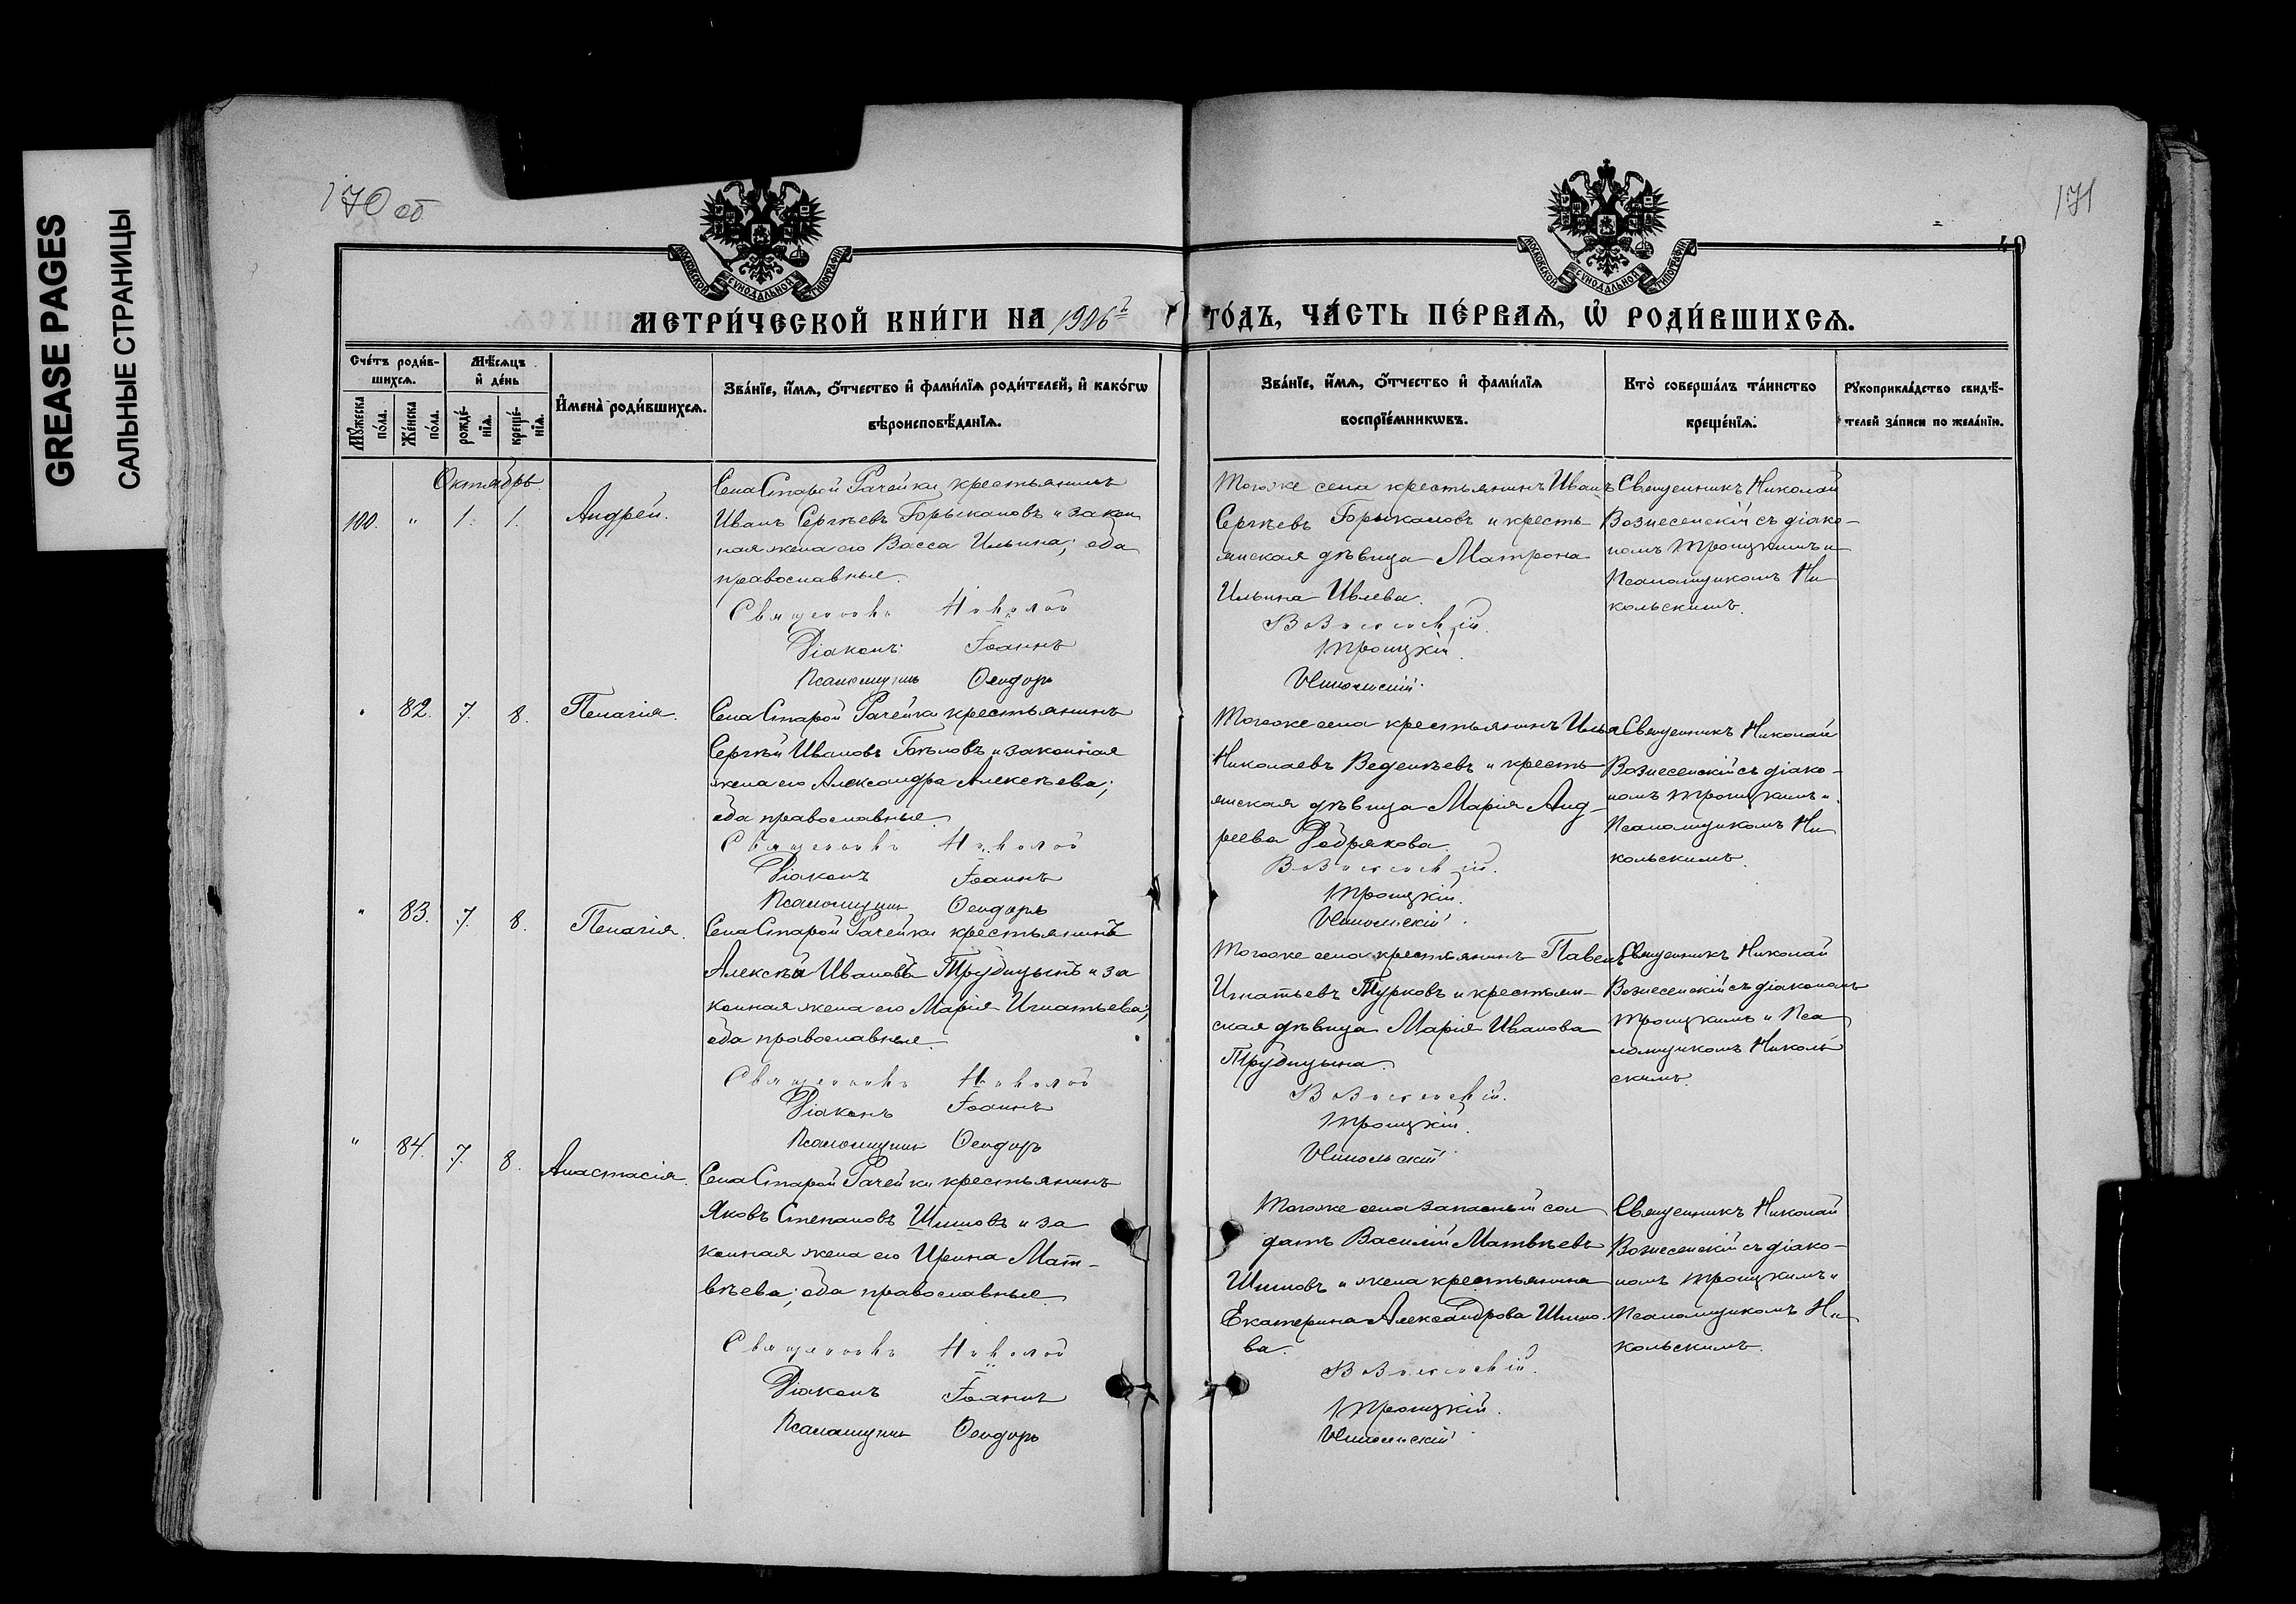 GREASE PAGES
САЛЬНЫЕ СТРАНИЦЫ
170 об
171
МОСКОВСКОЙ СУНОДАЛЬНОЙ ТИПОГРАФІИ
МОСКОВСКОЙ СУНОДАЛЬНОЙ ТИПОГРАФІИ
МЕТРИ́ЧЕСКОЙ КНИ́ГИ НА 1906й ГО́ДЪ, ЧА́СТЬ ПЕ́РВАѦ, Ѽ РОДИ́ВШИХСѦ.
Сче́тъ роди́в-
шихсѧ.
Мѣ́сѧцъ
и҆ де́нь
Му́жеска
по́ла.
Же́нска
по́ла.
рожде́-
нїѧ.
креще́-
нїѧ.
И҆мена̀ роди́вшихсѧ.
Зва́нїе, и҆́мѧ, ѻ҆́тчество и҆ фами́лїѧ роди́телей, и҆ како́гѡ
вѣроисповѣ́данїѧ.
Зва́нїе, и҆́мѧ, ѻ҆́тчество и҆ фами́лїѧ
воспрїе́мникѡвъ.
Кто̀ соверша́лъ та́инство
креще́нїѧ.
Рꙋкоприкла́дство свидѣ́-
телей за́писи по жела́нїю.
Октябрь.
100. " 1. 1. Андрей.
Села Старой Рачейки крестьянинъ
Иванъ Сергѣевъ Горыкановъ и закон
ная жена его Васса Ильина; оба
православные.
Священникъ Николай
Діаконъ Іоаннъ
Псаломщикъ Ѳеодоръ
Тогоже села крестьянинъ Иванъ
Сергѣевъ Горыкановъ и кресть-
янская дѣвица Матрона
Ильина Ивлева.
Вознесенскій.
Троицкій.
Никольскій.
Священникъ Николай
Вознесенскій съ діако-
номъ Троицкимъ и
Псаломщикомъ Ни
кольскимъ.
" 82. 7. 8. Пелагія.
Села Старой Рачейки крестьянинъ
Сергѣй Ивановъ Бѣловъ и законная
жена его Александра Алексѣева;
оба православные.
Священникъ Николай
Діаконъ Іоаннъ
Псаломщикъ Ѳеодоръ
Тогоже села крестьянинъ Илья
Николаевъ Веденѣевъ и кресть-
янская дѣвица Марія Анд-
реева Добрякова.
Вознесенскій.
Троицкій.
Никольскій.
Священникъ Николай
Вознесенскій съ діако-
номъ Троицкимъ и
Псаломщикомъ Ни
кольскимъ.
" 83. 7. 8. Пелагія.
Села Старой Рачейки крестьянинъ
Алексѣй Ивановъ Трубицынъ и за
конная жена его Марія Игнатьева;
оба православные.
Священникъ Николай
Діаконъ Іоаннъ
Псаломщикъ Ѳеодоръ
Тогоже села крестьянинъ Павелъ
Игнатьевъ Турковъ и крестьян-
ская дѣвица Марія Иванова
Трубицына.
Вознесенскій.
Троицкій.
Никольскій.
Священникъ Николай
Вознесенскій съ діакономъ
Троицкимъ и Пса
ломщикомъ Николь
скимъ.
" 84. 7. 8. Анастасія.
Села Старой Рачейки крестьянинъ
Яковъ Степановъ Шишовъ и за
конная жена его Ирина Мат-
вѣева; оба православные.
Священникъ Николай
Діаконъ Іоаннъ
Псаломщикъ Ѳеодоръ
Тогоже села запасный сол
датъ Василій Матвѣевъ
Шишовъ и жена крестьянина
Екатерина Александрова Шишо-
ва.
Вознесенскій.
Троицкій.
Никольскій
Священникъ Николай
Вознесенскій съ діако-
номъ Троицкимъ и
Псаломщикомъ Ни
кольскимъ.